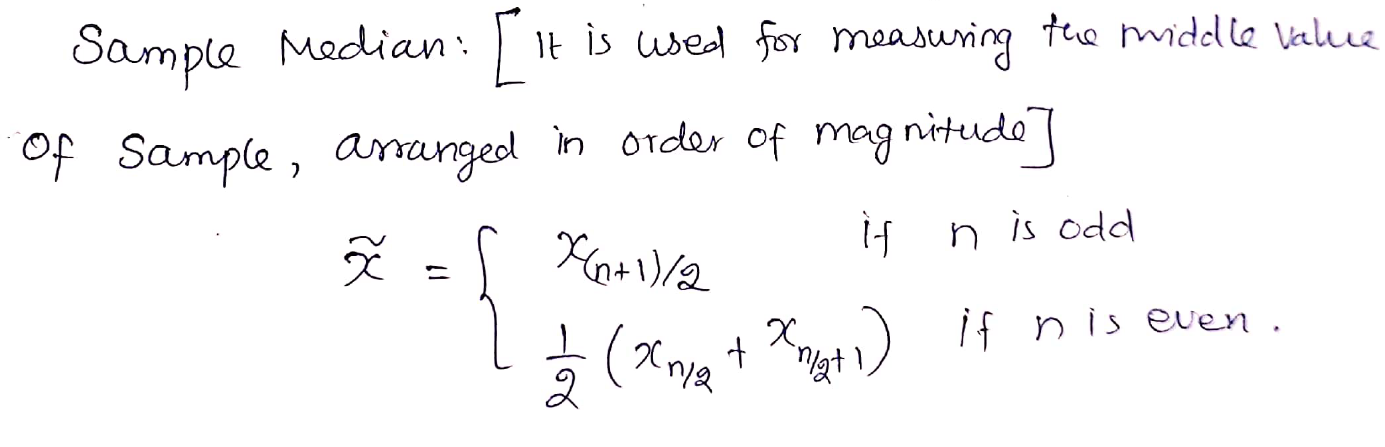 Sample Median: [It is used for measuring the middle value
Of Sample, arranged in order of magnitude]
x̃ = { x(n+1)/2 if n is odd
1/2 (x n/2 + x n/2+1) if n is even.